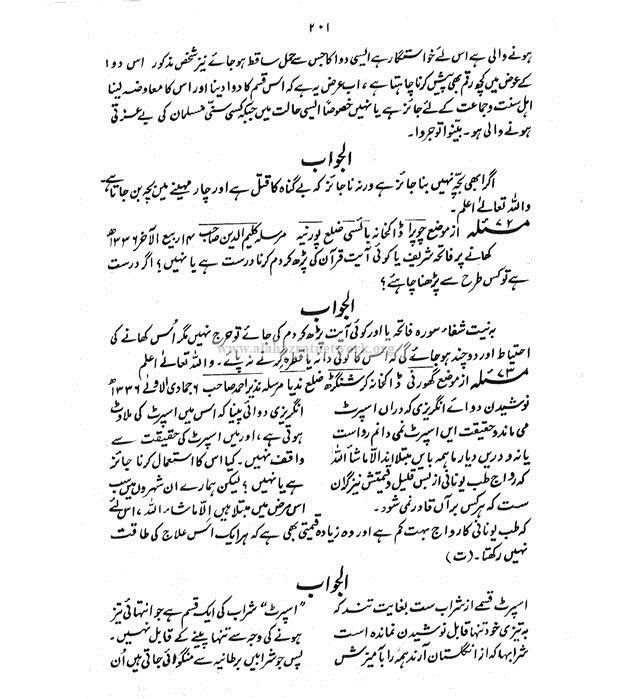 ۲۰۱
ہونے والی ہے اس لئے خواستگار ہے ایسی دوا کا جس سے حمل ساقط ہو جائے نیز شخص مذکور اس دوا
کے عوض میں کچھ رقم بھی پیش کرنا چاہتا ہے، اب عرض یہ ہے کہ اس قسم کا دوا دینا اور اس کا معاوضہ لینا
اہل سنت وجماعت کے لئے جائز ہے یا نہیں خصوصًا ایسی حالت میں جبکہ کسی سنی مسلمان کی بے عزتی
ہونے والی ہو۔ بیّنوا توجروا۔
الجواب
اگر ابھی بچّہ نہیں بنا جائز ہے ورنہ ناجائز کہ بے گناہ کا قتل ہے اور چار مہینے میں بچہ بن جاتا ہے،
واللہ تعالٰی اعلم۔
مسئلہ ۷۲ از موضع چوپرا ڈاکخانہ بائسی ضلع پورنیہ مرسلہ کلیم الدین صاحب ۱۴ ربیع الآخر ۱۳۳۶ھ
کھانے پر فاتحہ شریف یا کوئی آیت قرآن کی پڑھ کر دم کرنا درست ہے یا نہیں؟ اگر درست
ہے تو کس طرح سے پڑھنا چاہئے؟
الجواب
بہ نیت شفاء سورہ فاتحہ یا اور کوئی آیت پڑھ کر دم کی جائے تو حرج نہیں مگر اُس کھانے کی
احتیاط اور دوچند ہو جائے گی کہ اُس کا کوئی دانہ یا قطرہ گرنے نہ پائے۔ واللہ تعالٰی اعلم
مسئلہ ۷۳ از موضع گھورنی ڈاکخانہ کرشنگڑھ ضلع ندیا مرسلہ نذیر احمد صاحب ۶ جمادی الاولٰی ۱۳۳۶ھ
نوشیدن دوائے انگریزی کہ دراں اسپرٹ انگریزی دوائی پینا کہ اس میں اسپرٹ کی ملاوٹ
می ماند وحقیقت ایں اسپرٹ نمی دانم رواست ہوتی ہے، اور میں اسپرٹ کی حقیقت سے
یا نہ ودریں دیار ما ہمہ باس مبتلا اند الّا ماشاء اللہ واقف نہیں۔ کیا اس کا استعمال کرنا جائز
کہ رواج طب یونانی از بس قلیل وقیمتش نیز گراں ہے یا نہیں؟ لیکن ہمارے ان شہروں میں سب
ست کہ ہر کس بر آں قادر نمی شود۔ اس مرض میں مبتلا ہیں اِلّا ماشاء اللہ، اس لئے
کہ طب یونانی کا رواج بہت کم ہے اور وہ زیادہ قیمتی بھی ہے کہ ہر ایک اُس علاج کی طاقت
نہیں رکھتا۔ (ت)
الجواب
اسپرٹ قسمے از شراب ست بغایت تند کہ "اسپرٹ" شراب کی ایک قسم ہے جو انتہائی تیز
بہ تیزی خود تنہا قابل نوشیدن نماندہ است ہونے کی وجہ سے تنہا پینے کے قابل نہیں۔
شرابہا کہ از انگلستان آرند ہمہ را بآمیزش پس جو شرابیں برطانیہ سے منگوائی جاتی ہیں اُن